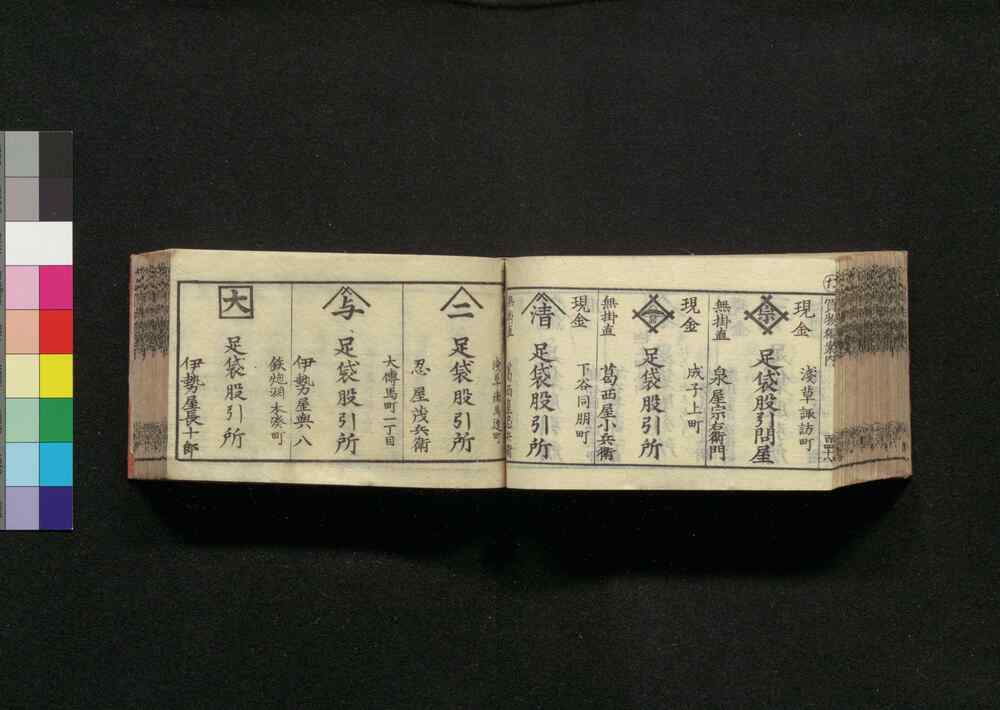 現金
淺草諏訪町
宗
足袋股引問屋
無掛直
泉屋宗右衛門
現金
成子上町
足袋股引所
無掛直
葛西屋小兵衛
現金
下谷同朋町
清
足袋股引所
無掛直
二
足袋股引所
忍屋浅兵衛
大傳馬町一丁目
与
足袋股引所
伊勢屋與八
鉄炮洲本湊町
大
足袋股引所
伊勢屋長十郎